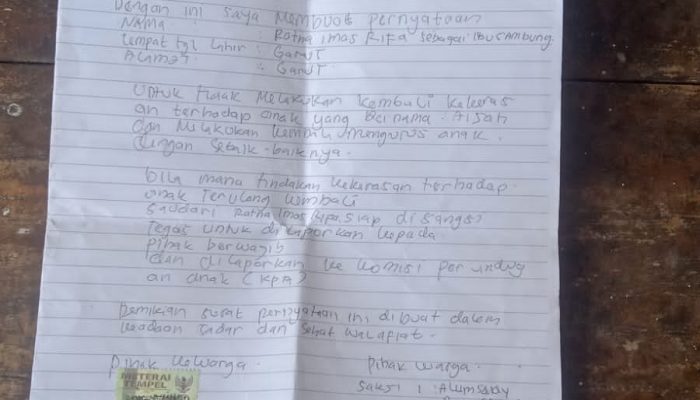 Dengan ini saya Membuat pernyataan
Nama : Ratna imas Rifa sebagai ibu sambung.
tempat tgl lahir : Garut
Alamat : Garut
Untuk tidak Melakukan kembali kekeras
an terhadap anak yang bernama Aisah
dan Melakukan kembali mengurus anak
dengan sebaik-baiknya.
bila mana tindakan kekerasan terhadap
anak Terulang kembali
saudari Ratna imas siap disangsi
Tegas untuk di laporkan kepada
pihak berwajib
dan dilaporkan ke komisi perlindung
an anak (KPA)
Demikian surat pernyataan ini dibuat dalam
keadaan sadar dan sehat walapiat.
pihak keluarga. pihak warga.
METERAI
TEMPEL
saksi 1 :